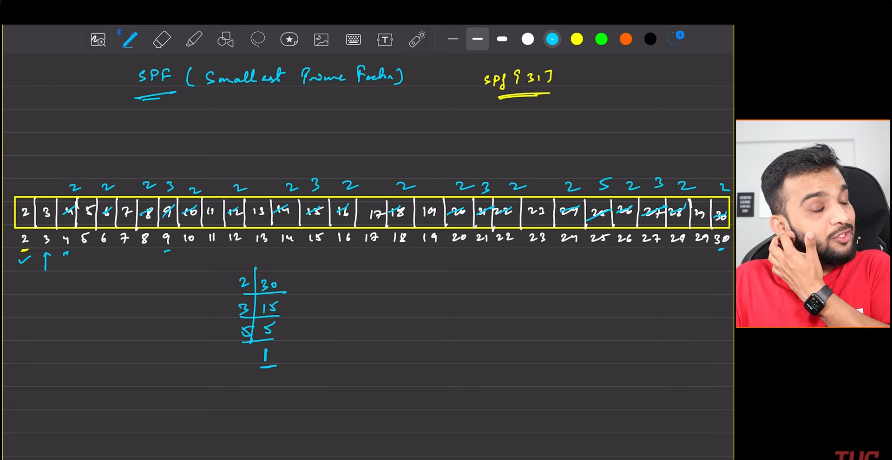 SPF (Smallest Prime Factor)
spf[31]
2 2 2 3 2 2 2 3 2 2 2 3 2 2 5 2 3 2 2
2 3 4 5 6 7 8 9 10 11 12 13 14 15 16 17 18 19 20 21 22 23 24 25 26 27 28 29 30
2 3 4 5 6 7 8 9 10 11 12 13 14 15 16 17 18 19 20 21 22 23 24 25 26 27 28 29 30
2 30
3 15
5 5
1
TUF